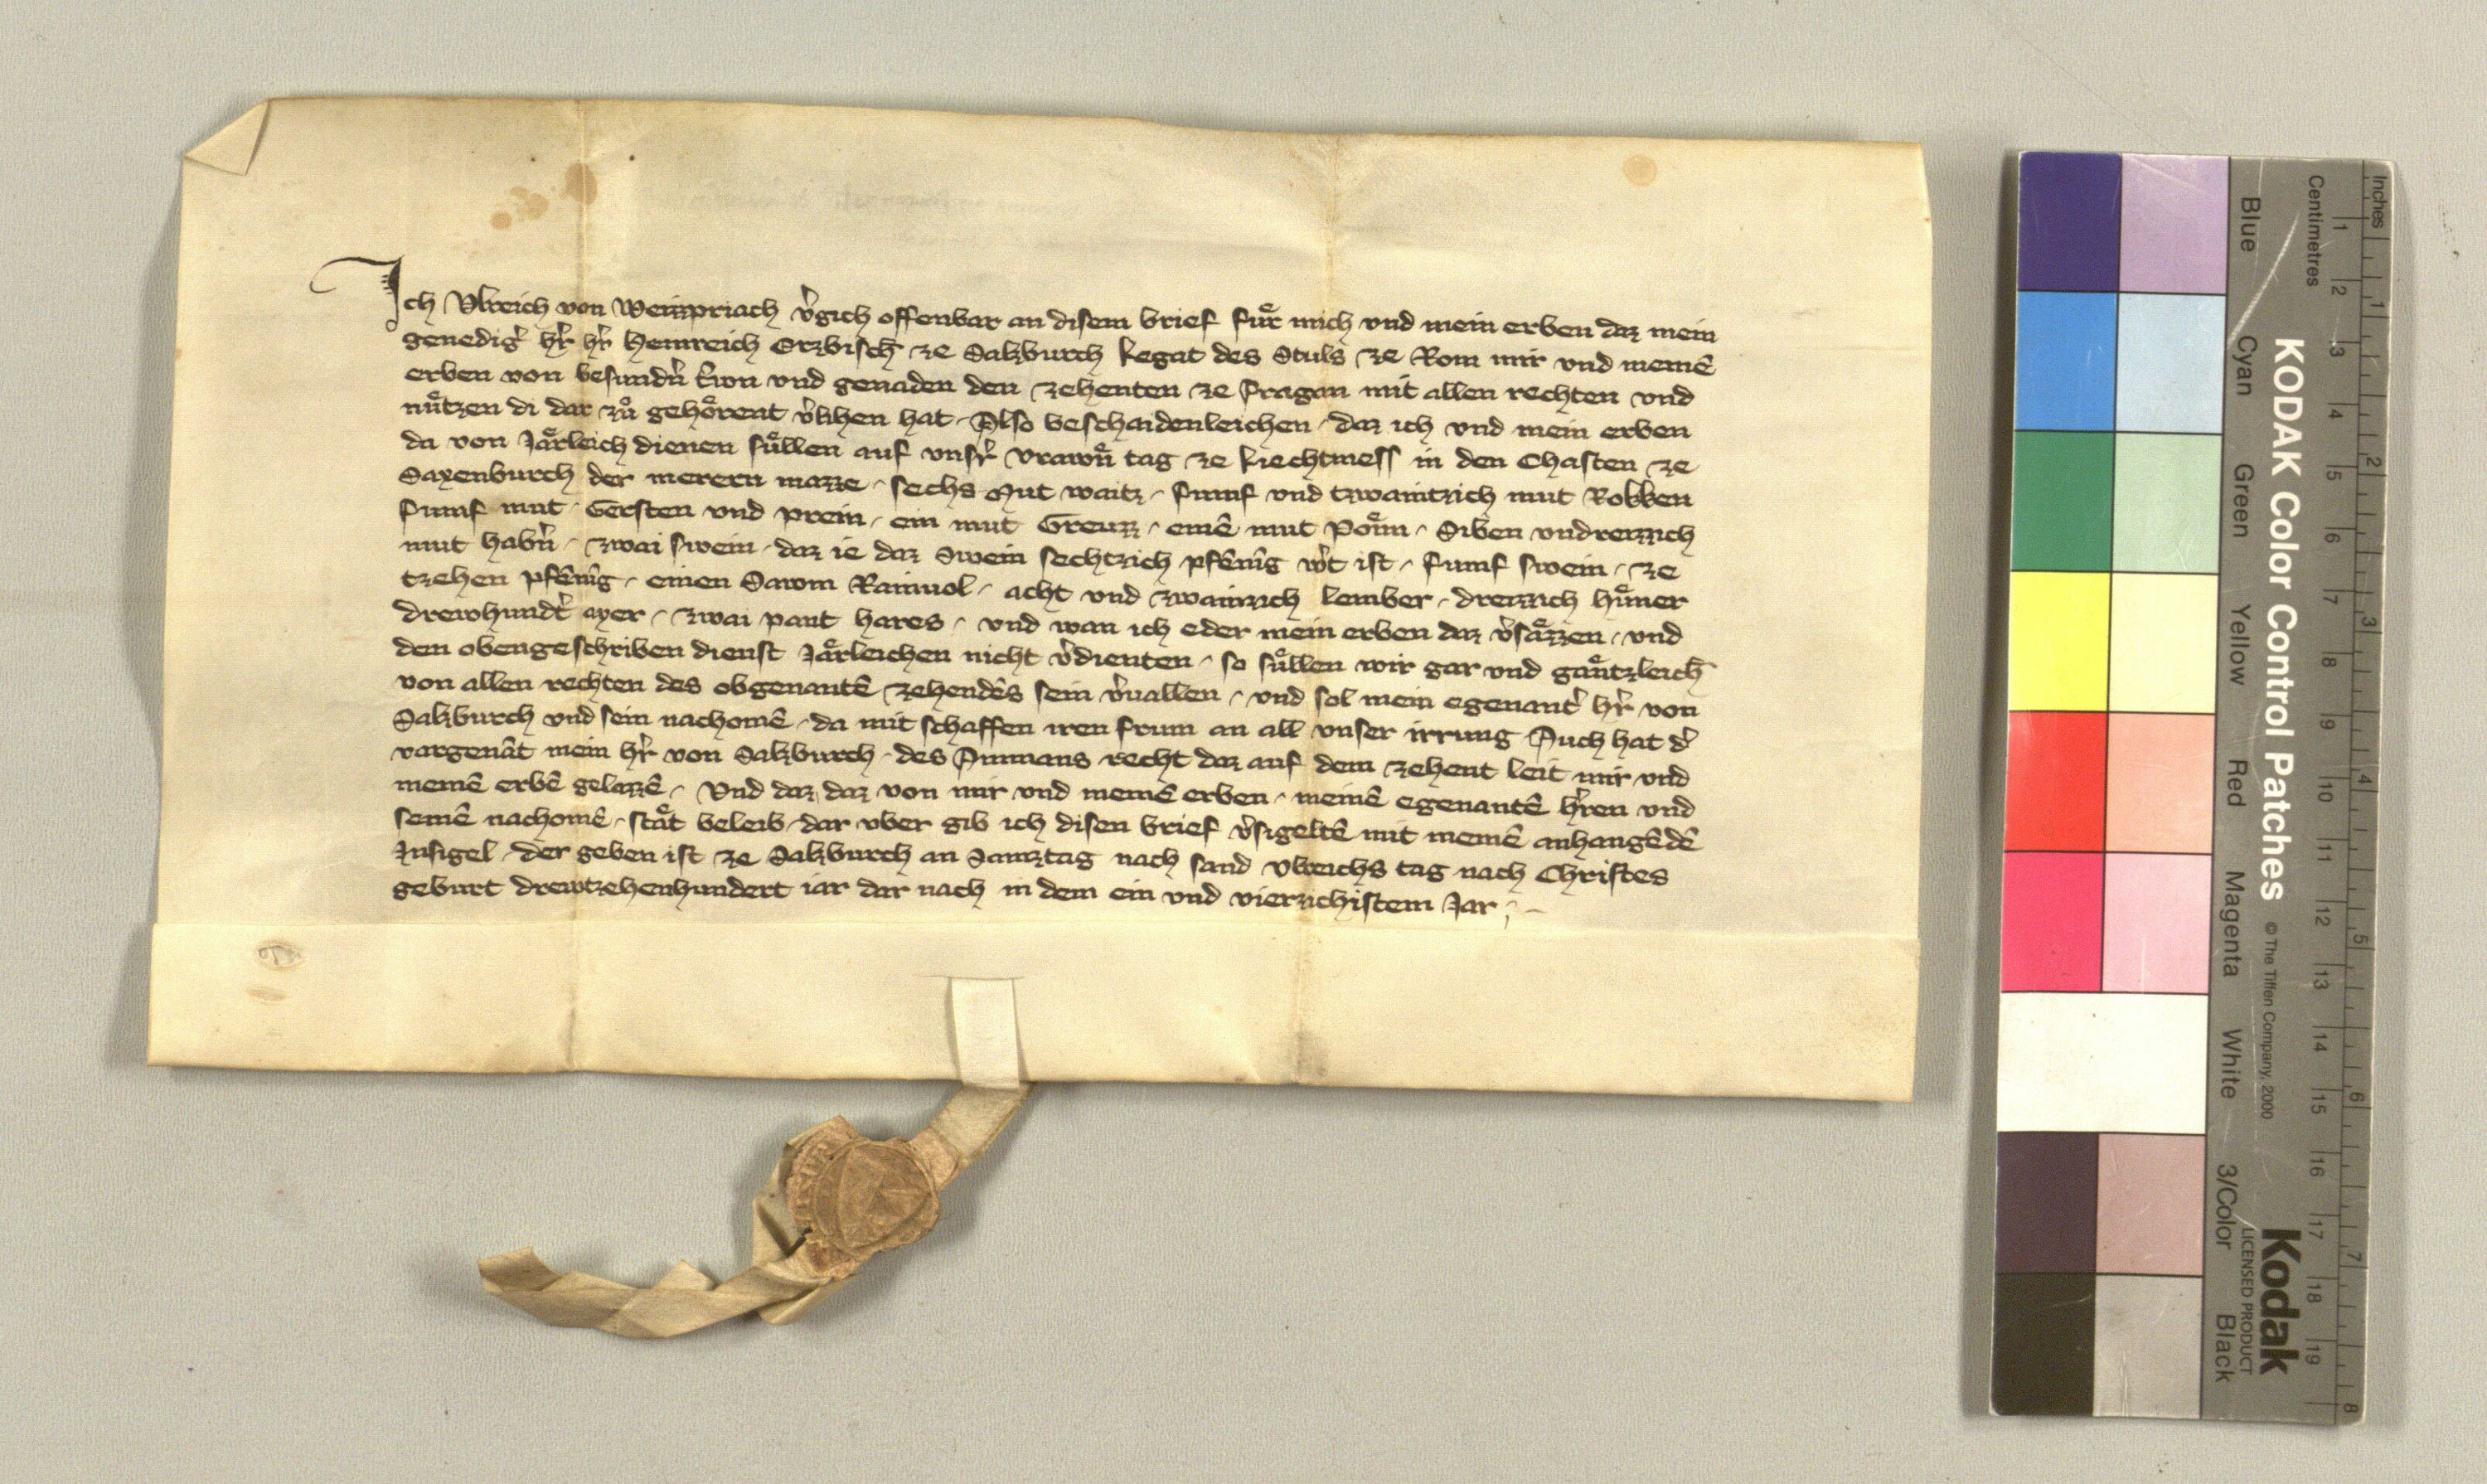 Ich Vlreich von Weizpriach v̾gich offenbar an disem brief fuͤr mich vnd mein erben daz mein
genedig̾ h̾r h̾r Heinreich Erzbisch̄ ze Salzburch Legat des Stuls ze Rom mir vnd meinē
erben von besundn̾ trwn vnd genaden den zehenten ze Fragan mit allen rechten vnd
nuͤtzen di dar zuͦ gehoͤrent v̾lihen hat Also beschaidenleichen daz ich vnd mein erben
da von Jaͤrleich dienen suͤllen auf vnsr̾ vrawn̄ tag ze Liechtmess in den Chasten ze
Saxenburch der merern mazze sechs Mut waitz fumf vnd tzwaintzich mut Rokken
fumf mut Gersten vnd prein ein mut Greuzz einē mut Poͤun Siben vndreizzich
mut habn̾ zwai swein daz ie daz Swein sechtzich pfēnīg w̾t ist fumf swein ze
tzehen pfēnīg einen Sawm Rainuol acht vnd zwainzich lember dreizzich huͤner
drewhundt̾ ayer zwai pant hares vnd wan ich eder mein erben daz v̾saͤzzen vnd
den obengeschriben dienst Jaͤrleichen nicht v̾dienten so suͤllen wir gar vnd gaͤntzleich
von allen rechten des obgenantē zehendēs sein v̾uallen vnd sol mein egenant̾ h̾r von
Salzburch vnd sein nachomē da mit schaffen iren frum an all vnser irrung Auch hat d̾
vargenāt mein h̾r von Salzburch des Ammans recht daz auf dem zehent leit mir vnd
meinē erbē gelazzē Vnd daz daz von mir vnd meinē erben meinē egenantē h̾ren vnd
seinē nachomē staͤt beleib dar vber gib ich disen brief v̾sigeltē mit meinē anhangēdē
Insigel der geben ist ze Salzburch an Samztag nach sand Vlreichs tag nach Christes
geburt drewtzehenhundert iar dar nach in dem ein vnd vierzichistem Jar
KODAK Color Control Patches
© The Tiffen Company, 2000
Kodak
LICENSED PRODUCT
Inches
1 2 3 4 5 6 7 8
Centimetres
1 2 3 4 5 6 7 8 9 10 11 12 13 14 15 16 17 18 19
Blue Cyan Green Yellow Red Magenta White 3/Color Black